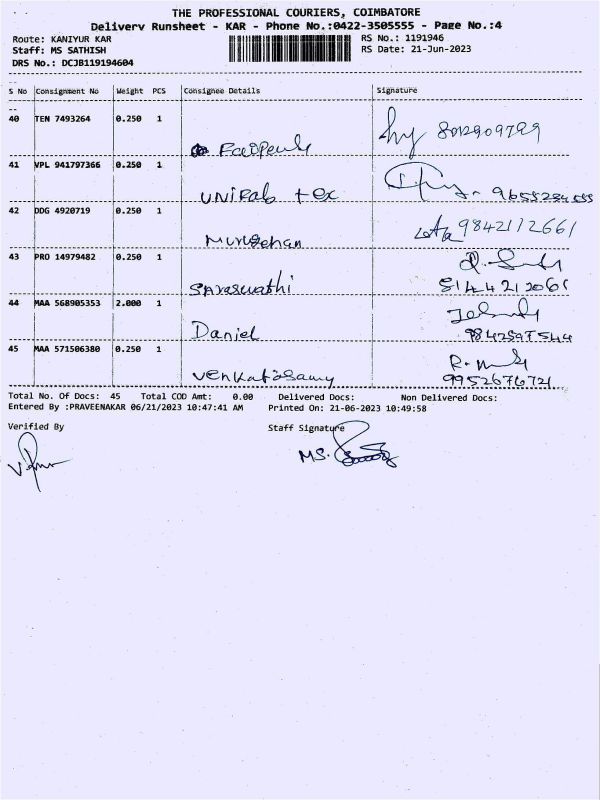 THE PROFESSIONAL COURIERS, COIMBATORE
Delivery Runsheet - KAR - Phone No.:0422-3505555 - Page No.:4
Route: KANIYUR KAR RS No.: 1191946
Staff: MS SATHISH RS Date: 21-Jun-2023
DRS No.: DCJB119194604
S No Consignment No Weight PCS Consignee Details Signature
40 TEN 7493264 0.250 1
8012909799
41 VPL 941797366 0.250 1
UNIFab tex
42 DDG 4920719 0.250 1 9842112661
Murugehan
43 PRO 14979482 0.250 1
Saraswathi 8144212061
44 MAA 568905353 2.000 1
Daniel 9842597544
45 MAA 571506380 0.250 1
Venkatasamy 9952676721
Total No. Of Docs: 45 Total COD Amt: 0.00 Delivered Docs: Non Delivered Docs:
Entered By :PRAVEENAKAR 06/21/2023 10:47:41 AM Printed On: 21-06-2023 10:49:58
Verified By Staff Signature
MS.